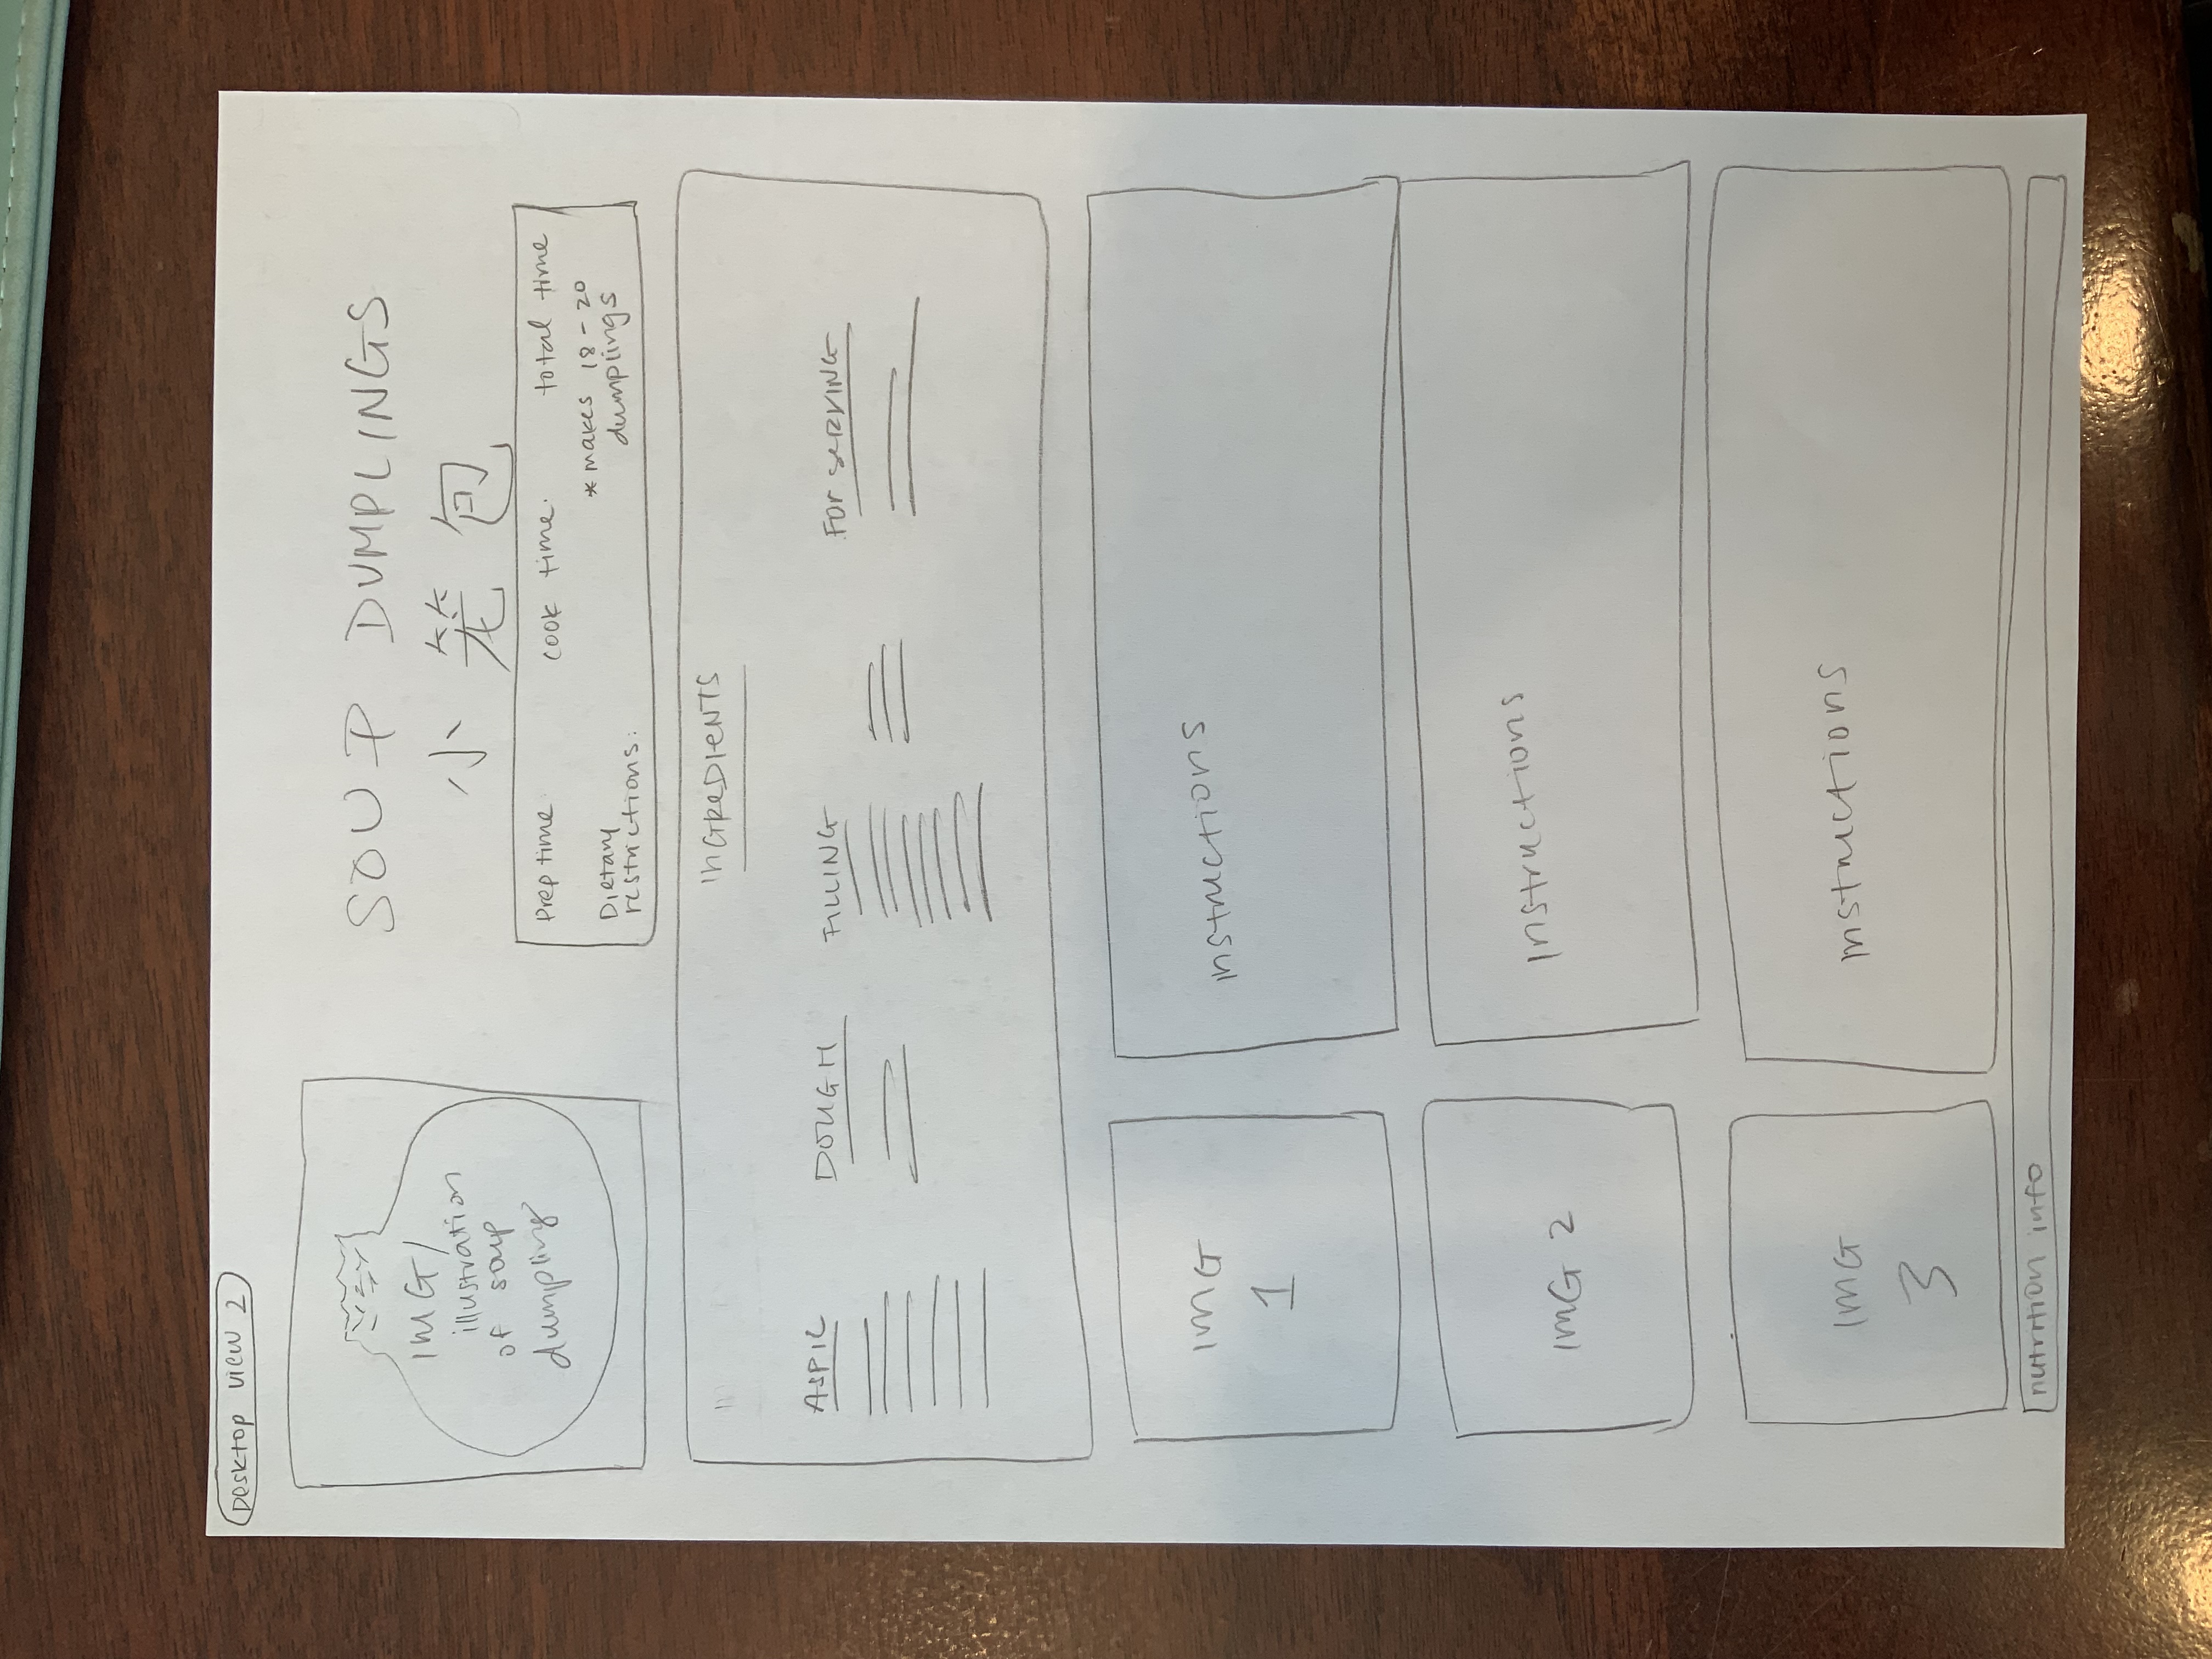 Desktop view 2
IMG/
illustration
of soup
dumpling
SOUP DUMPLINGS
小笼包
Prep time
cook time.
total time
Dietary
restrictions:
*makes 18-20
dumplings
INGREDIENTS
ASPIC
DOUGH
FILLING
FOR SERVING
IMG
1
instructions
IMG 2
Instructions
IMG
3
instructions
nutrition info